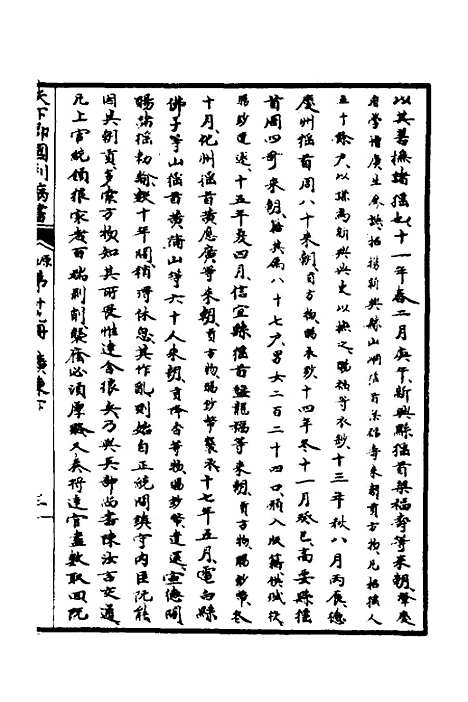 以其善撫諸猺也十一年春二月庚午新興縣猺首梁福壽等來朝肇慶
府學增廣生廖謙招撫新興縣山峒猺首梁福壽來朝貢方物凡招猺人
五十餘戶以謙為新興典史以撫之賜福等衣鈔十三年秋八月丙辰德
慶州猺首周八十來朝貢方物賜衣鈔十四年冬十一月癸巳高要縣猺
首周四哥來朝籍其屬八十七戶男女二百二十四口願入版籍供賦役
賜鈔遣還十五年夏四月信宜縣猺首盤龍福等來朝貢方物賜鈔幣冬
十月化州猺首黃應廣等來朝貢方物賜鈔幣襲衣十七年五月電白縣
佛子等山猺首黃蒲山等六十人來朝貢降香等物賜鈔幣遣還宣德間
賜諸猺勑諭數十年間稍得休息其作亂則始自正統間鎮守內臣阮能
因其朝貢多索方物知其所畏惟達舍狼兵乃與兵部尚書陳汝言交通
凡上官統領狼家者百端剝削襲廕必須厚賂又奏將達官盡數取回阮
天下郡國利病書 原第廿九冊 廣東下